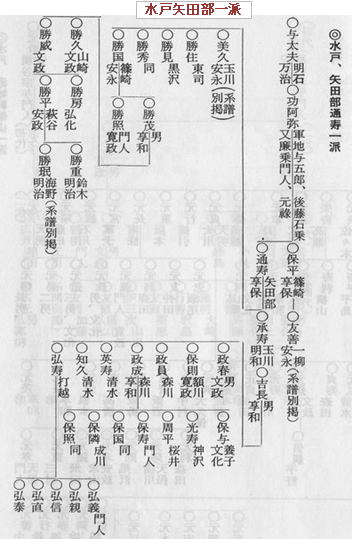 水戸矢田部一派
◎水戸、矢田部通寿一派
○与太夫 明石 万治
○功阿弥 軍地与五郎、後藤石乗又廉乗門人、元禄
○保平 篠崎 享保
○友善 一柳 安永 (系譜別掲)
○通寿 矢田部 享保
○承寿 玉川 明和
○吉長 男 享和
○美久 玉川 安永 (系譜別掲)
○勝住 東司
○勝見 黒沢
○勝秀 同
○勝国 篠崎 安永
○勝茂 男 享和
○勝照 門人 寛政
○勝久 山崎 文政
○勝房 弘化
○勝重 鈴木 明治
○勝威 文政
○勝平 萩谷 安政
○勝珉 海野 明治 (系譜別掲)
○政春 男 文政
○保与 養子 文化
○保則 額川 寛政
○光寿 神沢
○政員 森川
○周平 桜井
○政成 森川 享和
○保寿 門人
○英寿 清水
○保国 同
○知久 清水
○保隣 成川
○弘寿 打越
○保照 同
○弘義 門人
○弘親
○弘信
○弘直
○弘泰